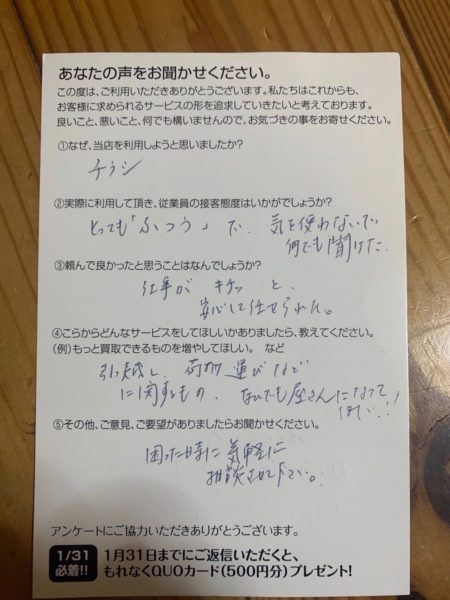 あなたの声をお聞かせください。
この度は、ご利用いただきありがとうございます。私たちはこれからも、
お客様に求められるサービスの形を追求していきたいと考えております。
良いこと、悪いこと、何でも構いませんので、お気づきの事をお寄せください。
①なぜ、当店を利用しようと思いましたか?
チラシ
②実際に利用して頂き、従業員の接客態度はいかがでしょうか?
とっても「ふつう」で、気を使わないで
何でも聞けた。
③頼んで良かったと思うことはなんでしょうか?
仕事がキチッと、
安心して任せられた。
④こらからどんなサービスをしてほしいかありましたら、教えてください。
(例)もっと買取できるものを増やしてほしい。 など
引っ越し、荷物運びなど
に関するもの、なんでも屋さんになって
ほしい!!
⑤その他、ご意見、ご要望がありましたらお聞かせください。
困った時に気軽に
相談させて下さい。
アンケートにご協力いただきありがとうございます。
1/31
必着!!
1月31日までにご返信いただくと、
もれなくQUOカード(500円分)プレゼント!